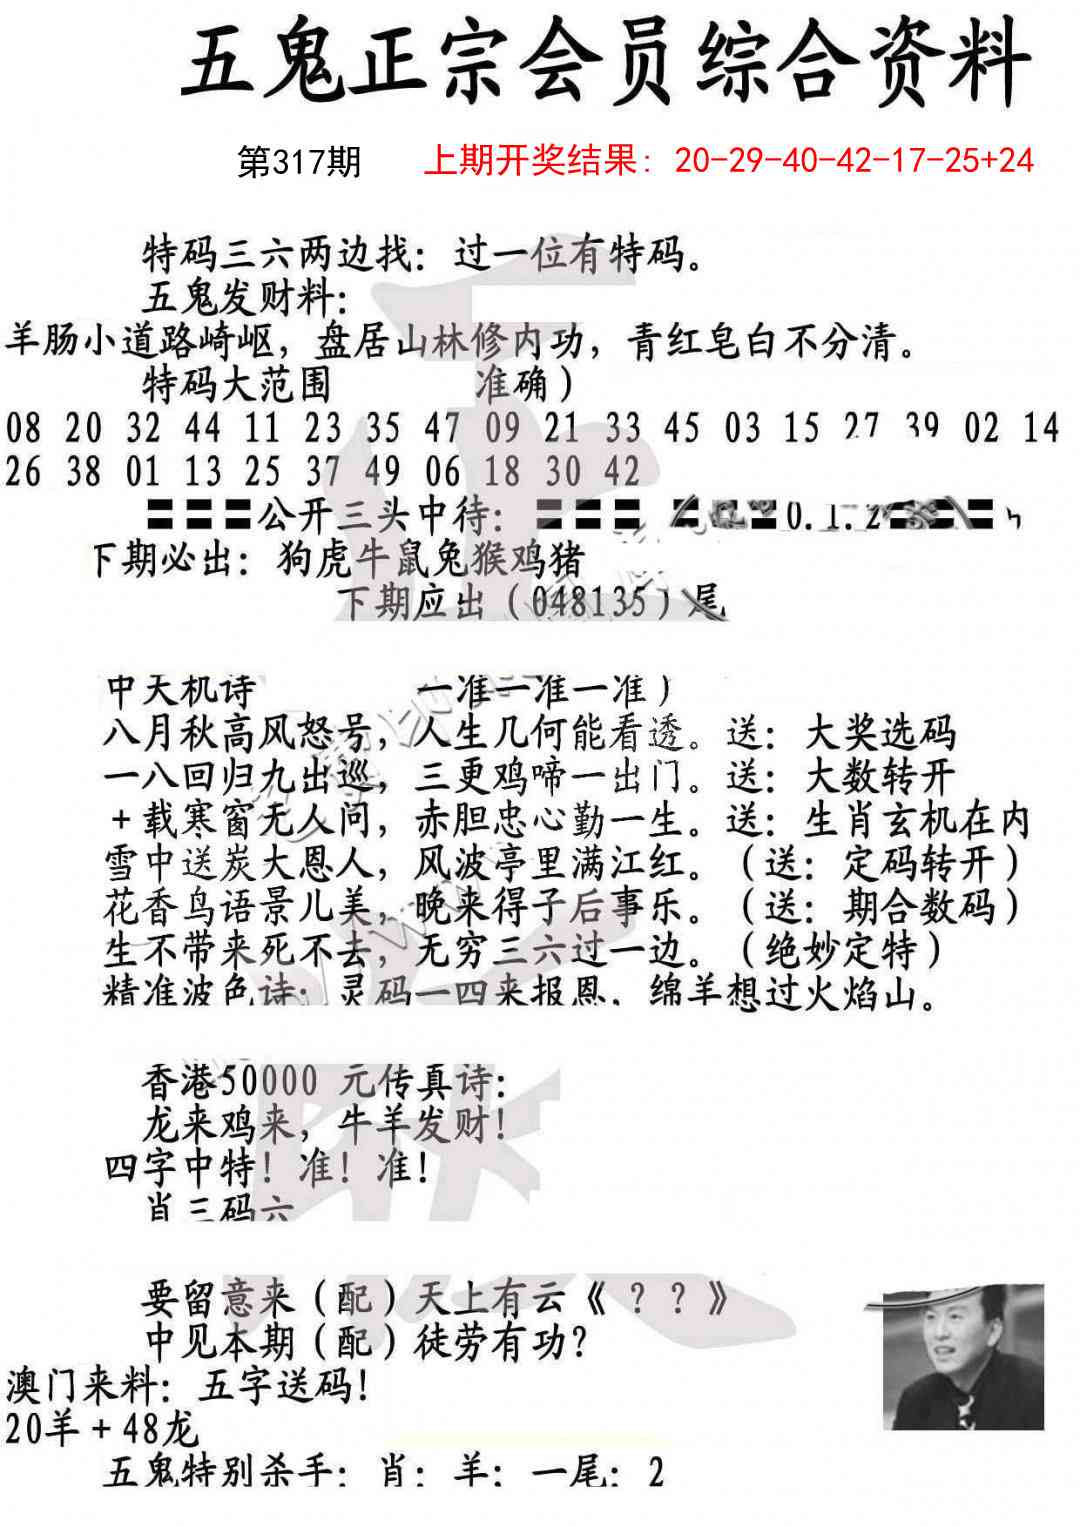 五鬼正宗会员综合资料
第317期 上期开奖结果: 20-29-40-42-17-25+24
特码三六两边找: 过一位有特码。
五鬼发财料:
羊肠小道路崎岖, 盘居山林修内功, 青红皂白不分清。
特码大范围 准确)
08 20 32 44 11 23 35 47 09 21 33 45 03 15 27 39 02 14
26 38 01 13 25 37 49 06 18 30 42
〓〓〓公开三头中待: 〓〓〓 0.1.2
下期必出: 狗虎牛鼠兔猴鸡猪
下期应出(048135)尾
中天机诗 一准一准一准)
八月秋高风怒号, 人生几何能看透。送: 大奖选码
一八回归九出巡, 三更鸡啼一出门。送: 大数转开
+载寒窗无人问, 赤胆忠心勤一生。送: 生肖玄机在内
雪中送炭大恩人, 风波亭里满江红。(送: 定码转开)
花香鸟语景儿美, 晚来得子后事乐。(送: 期合数码)
生不带来死不去, 无穷三六过一边。(绝妙定特)
精准波色诗: 灵码一四来报恩, 绵羊想过火焰山。
香港50000 元传真诗:
龙来鸡来, 牛羊发财!
四字中特! 准! 准!
肖三码六
要留意来(配)天上有云《??》
中见本期(配)徒劳有功?
澳门来料: 五字送码!
20羊+48龙
五鬼特别杀手: 肖: 羊: 一尾: 2